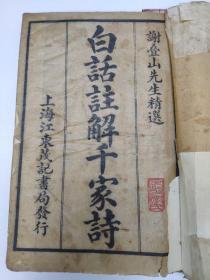 謝叠山先生精選
白話註解千家詩
上海江東茂記書局發行